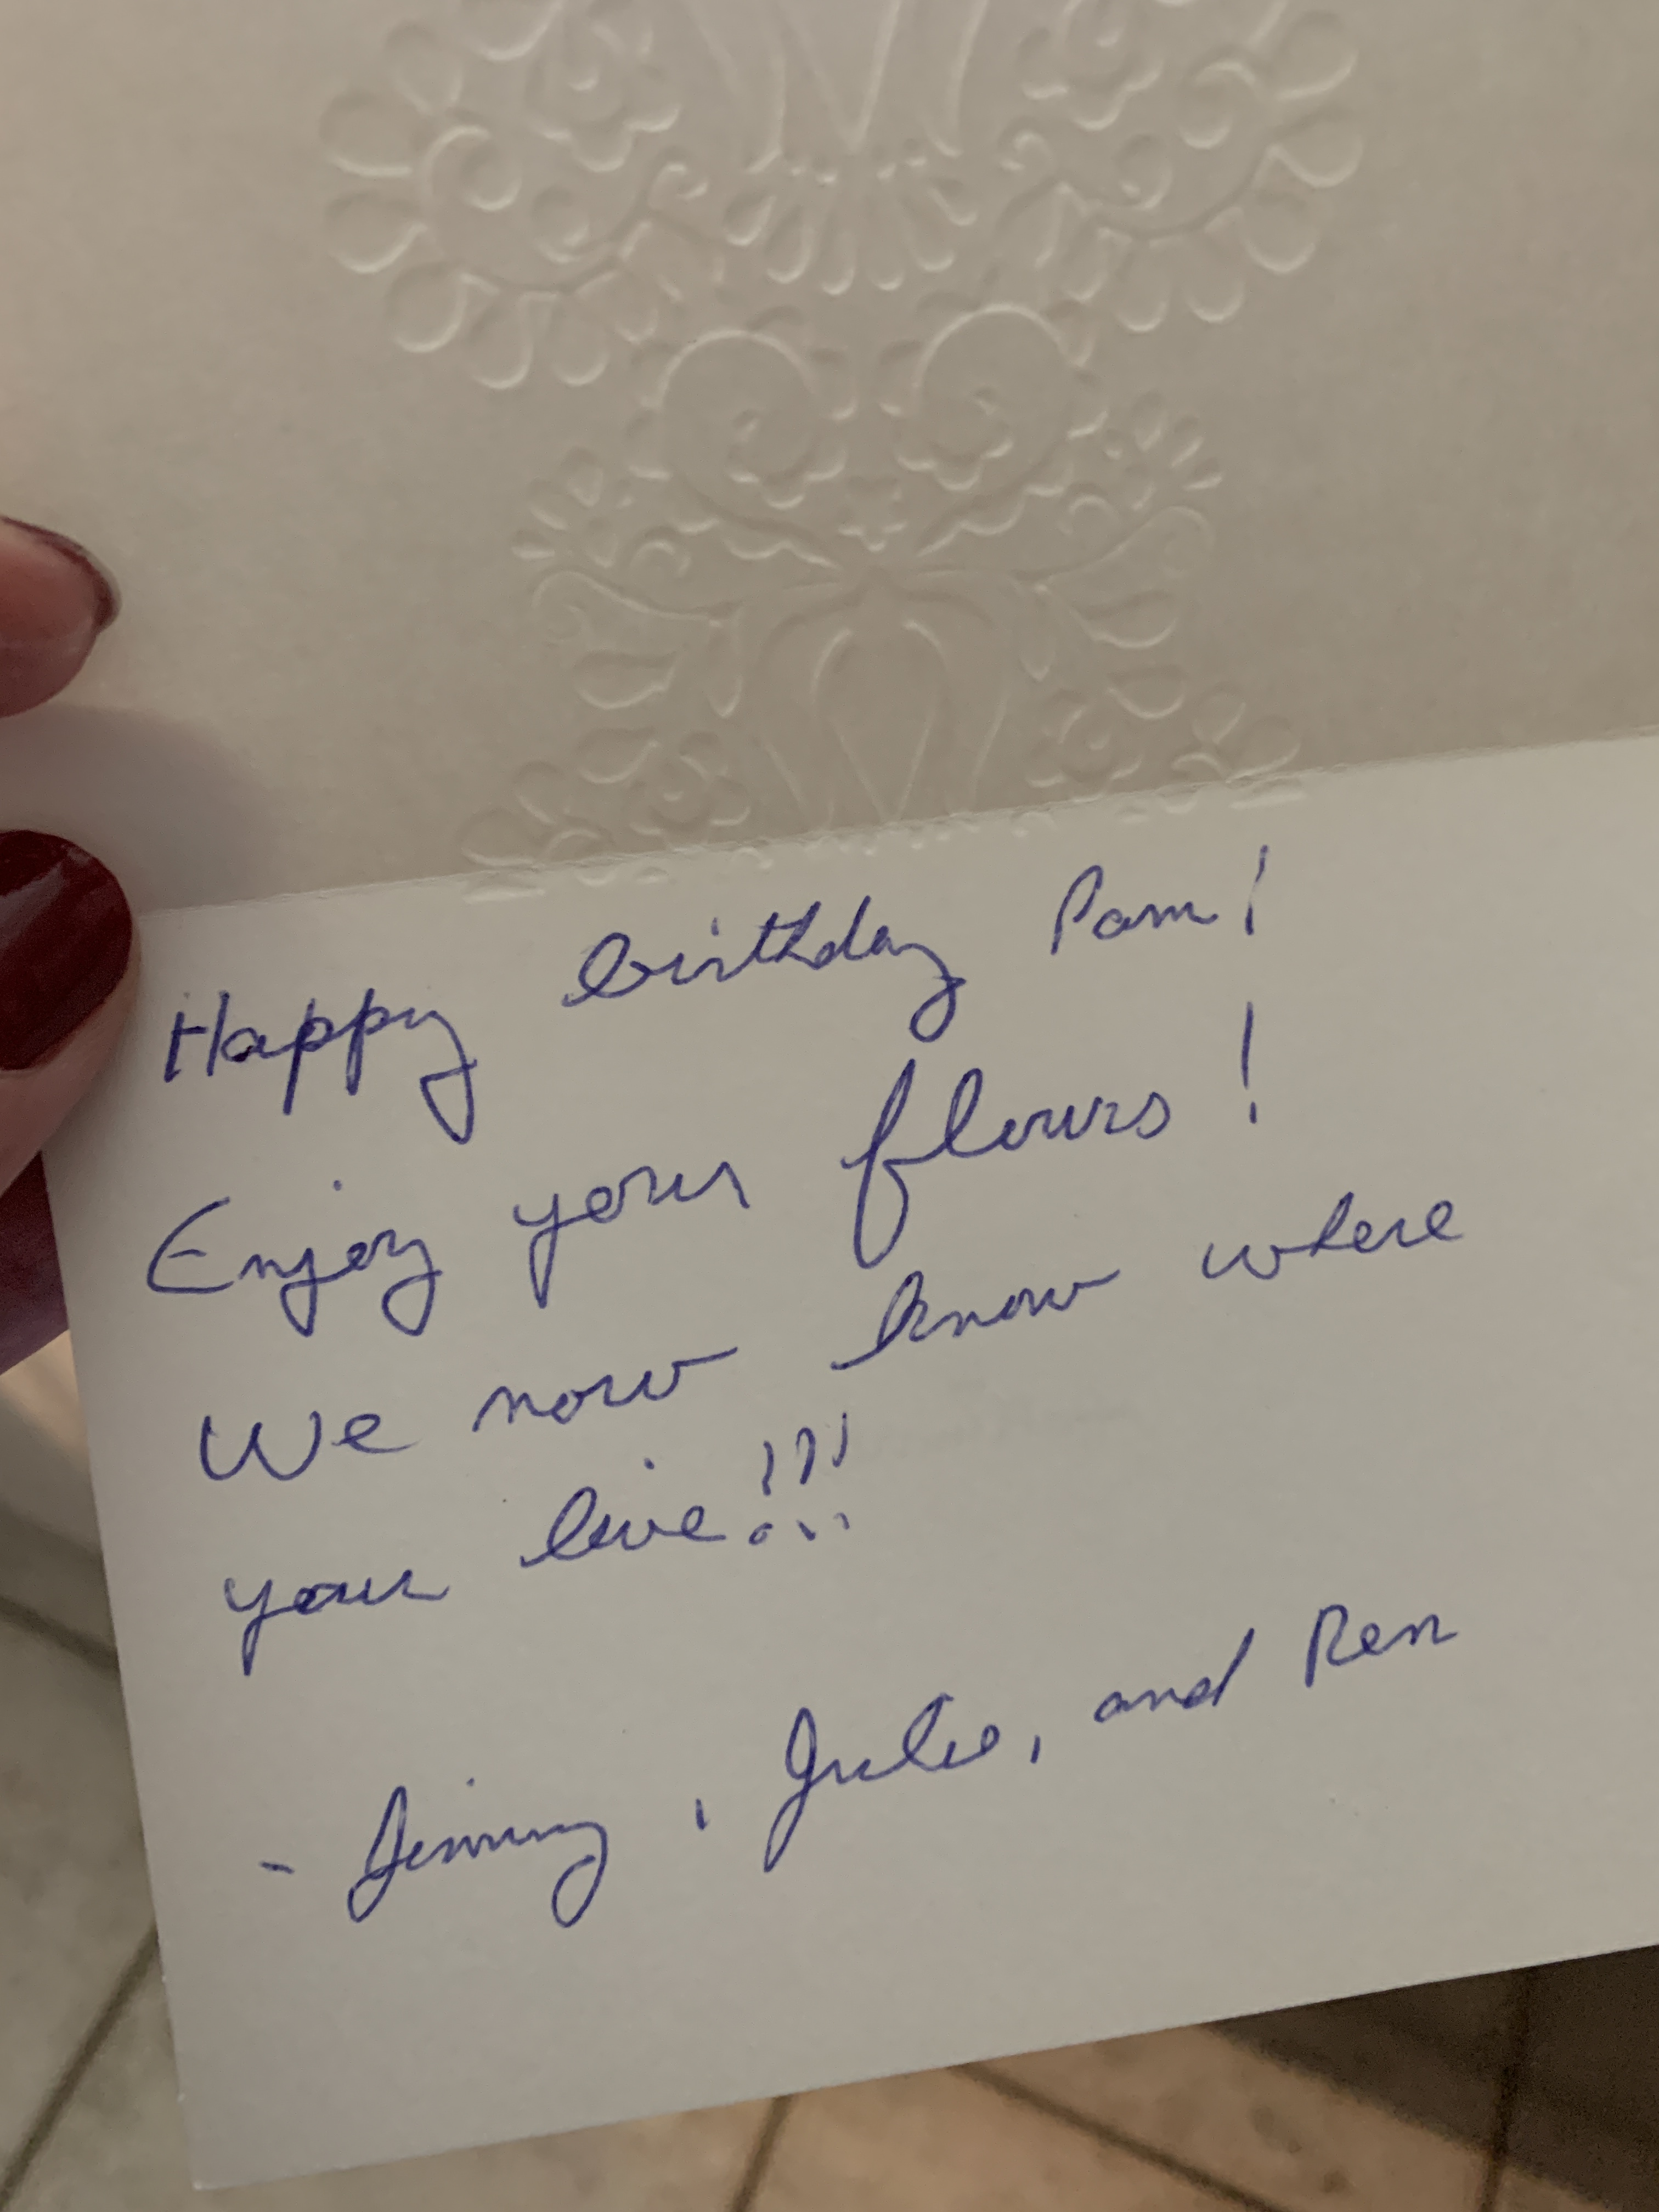 Happy birthday Pam!
Enjoy your flours!
We now know where
your live!!!
- Jimmy, Julio, and Ren